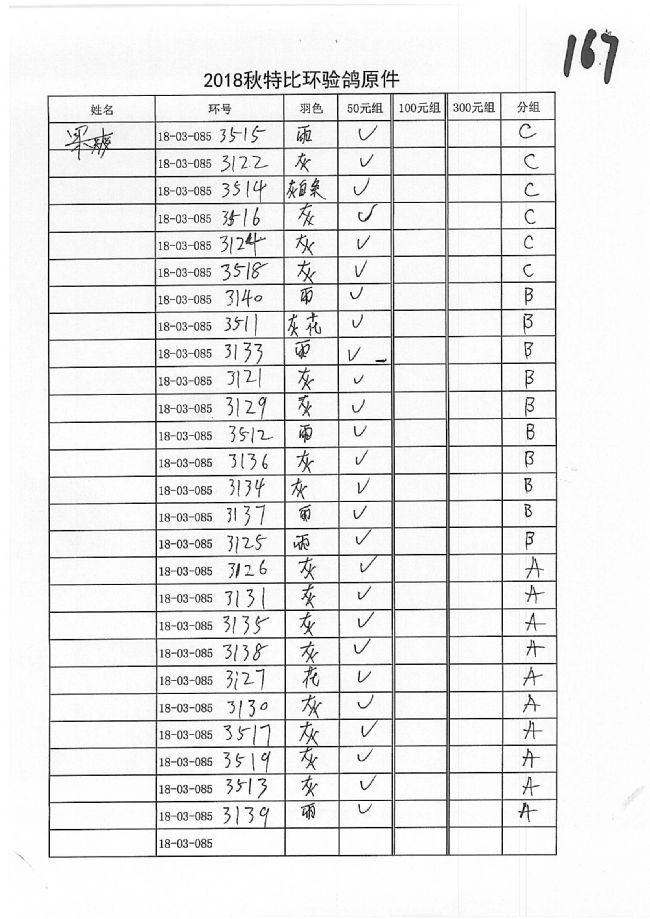 167
2018秋特比环验鸽原件
姓名 环号 羽色 50元组 100元组 300元组 分组
18-03-085 3515 雨 ✓ C
18-03-085 3122 灰 ✓ C
18-03-085 3514 灰白条 ✓ C
18-03-085 3516 灰 ✓ C
18-03-085 3124 灰 ✓ C
18-03-085 3518 灰 ✓ C
18-03-085 3140 雨 ✓ B
18-03-085 3511 灰花 ✓ B
18-03-085 3133 雨 ✓ B
18-03-085 3121 灰 ✓ B
18-03-085 3129 灰 ✓ B
18-03-085 3512 雨 ✓ B
18-03-085 3136 灰 ✓ B
18-03-085 3134 灰 ✓ B
18-03-085 3137 雨 ✓ B
18-03-085 3125 雨 ✓ B
18-03-085 3126 灰 ✓ A
18-03-085 3131 灰 ✓ A
18-03-085 3135 灰 ✓ A
18-03-085 3138 灰 ✓ A
18-03-085 3127 花 ✓ A
18-03-085 3130 灰 ✓ A
18-03-085 3517 灰 ✓ A
18-03-085 3519 灰 ✓ A
18-03-085 3513 灰 ✓ A
18-03-085 3139 雨 ✓ A
18-03-085